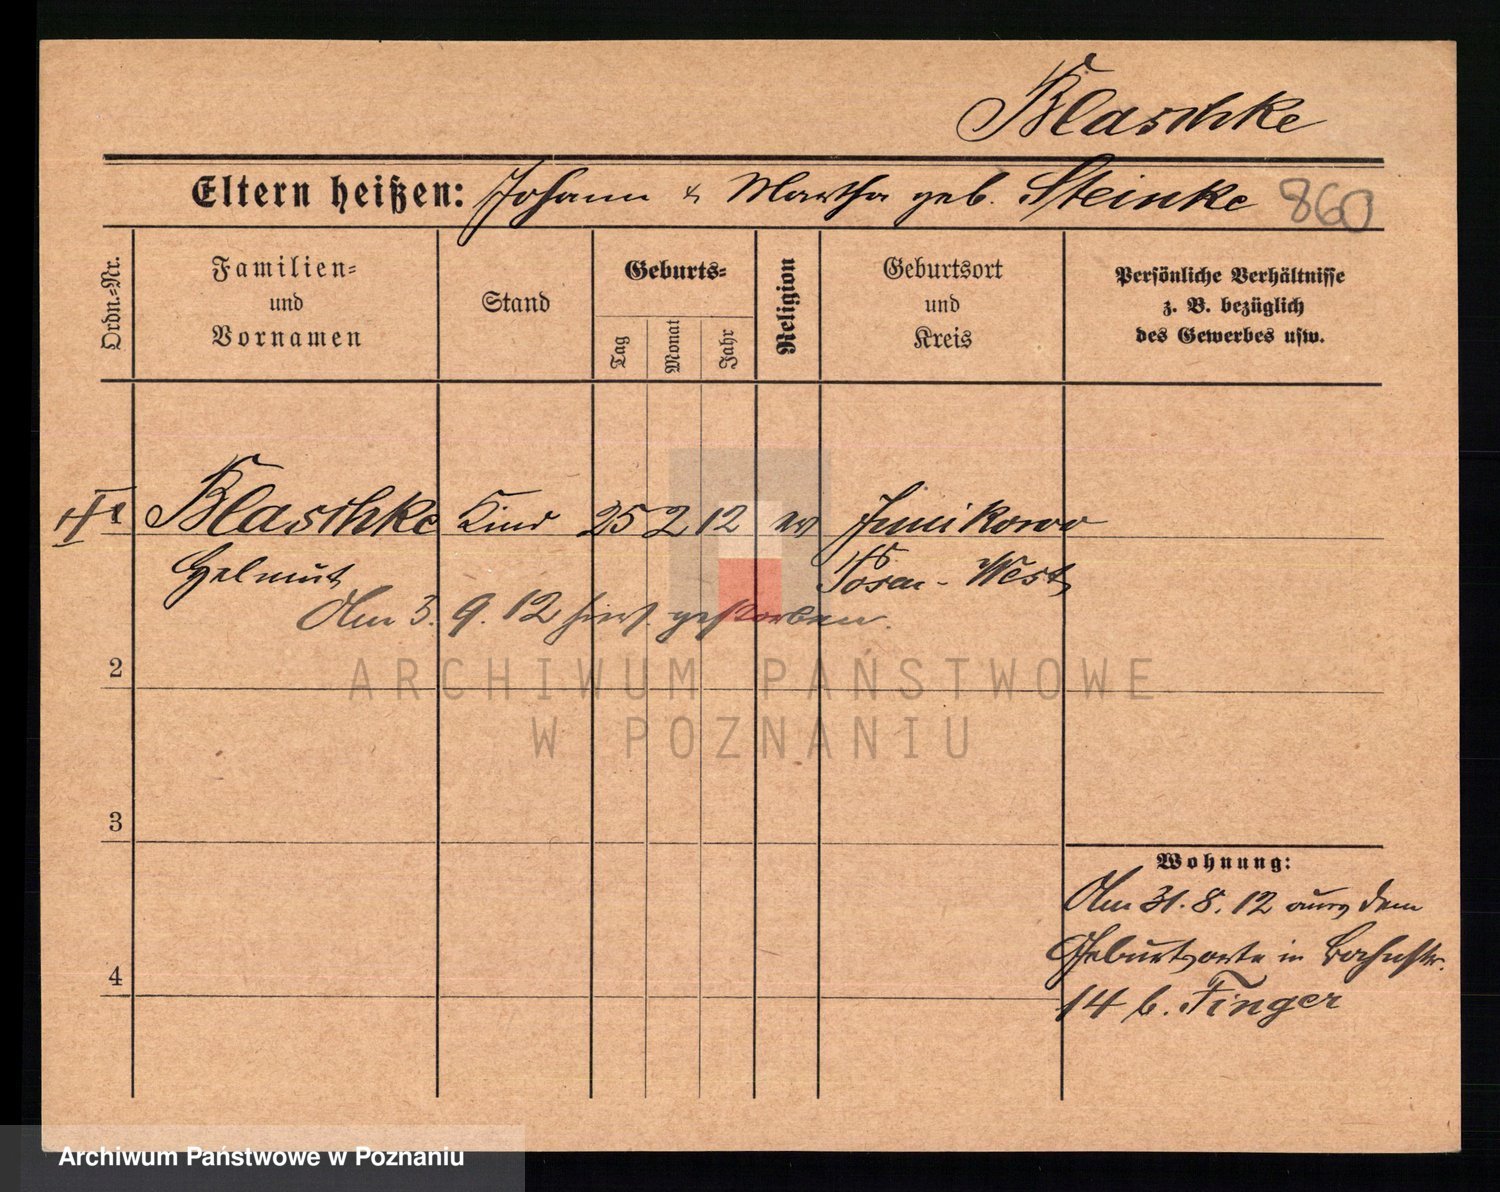 Blaschke
Eltern heißen: Johann & Martha geb. Steinke 860
Ordn.-Nr.
Familien-
und
Vornamen
Stand
Geburts-
Tag
Monat
Jahr
Religion
Geburtsort
und
Kreis
Persönliche Verhältnisse
z. B. bezüglich
des Gewerbes usw.
1 Blaschke Kind 25 2 12 ev Junikowo
Helmut Posen-West
Am 3. 9. 12 hier gestorben.
2
3
4
Wohnung:
Am 31. 8. 12 aus dem
Geburtsorte in Bahnstr.
14 b. Finger
ARCHIWUM PAŃSTWOWE
W POZNANIU
Archiwum Państwowe w Poznaniu